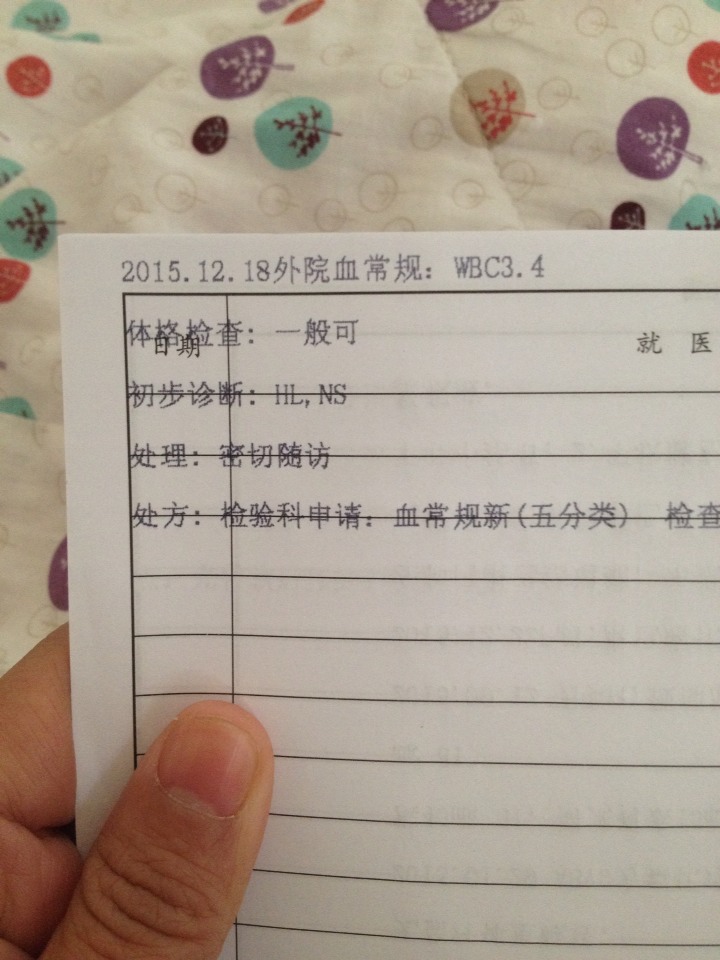 2015.12.18外院血常规：WBC3.4
体格检查：一般可
日期
就 医
初步诊断：HL,NS
处理：密切随访
处方：检验科申请：血常规新(五分类) 检查